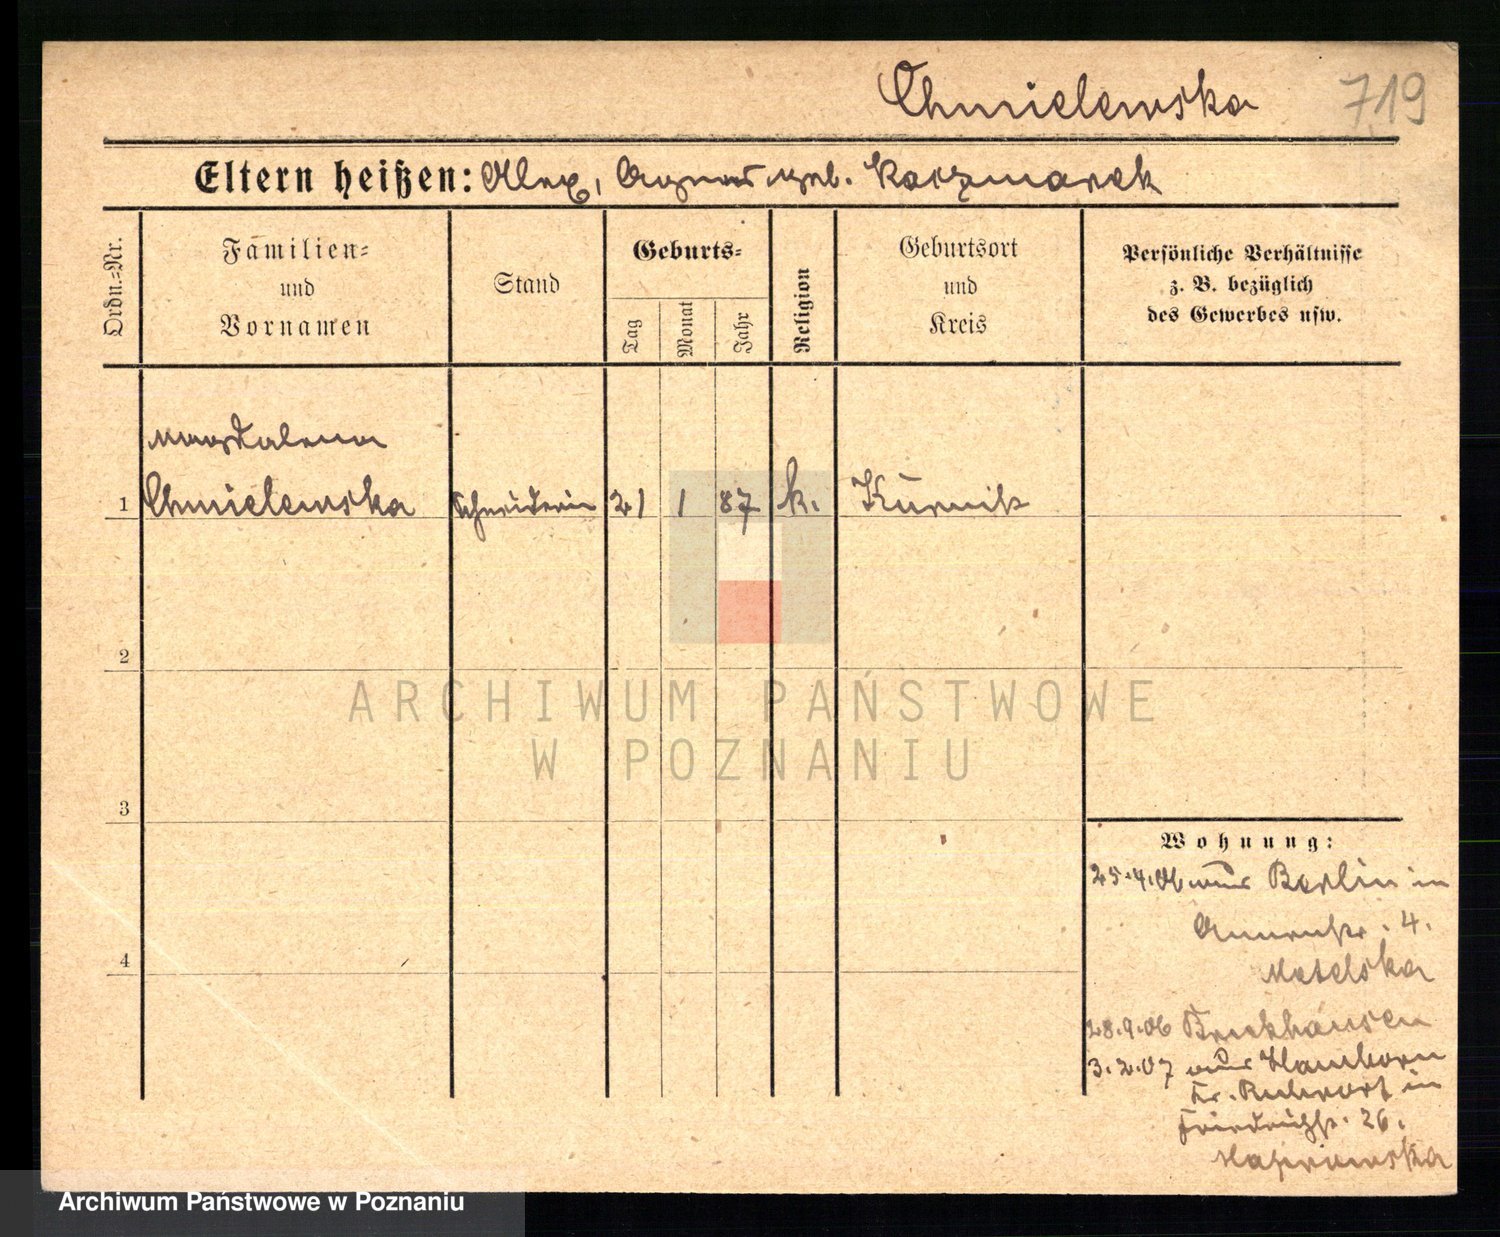 Chmielewska 719
Eltern heißen: Alex, Agnes geb. Kaczmarek
Ordn.=Nr.
Familien=
und
Vornamen
Stand
Geburts=
Tag
Monat
Jahr
Religion
Geburtsort
und
Kreis
Persönliche Verhältnisse
z. B. bezüglich
des Gewerbes usw.
Magdalena
1 Chmielewska Schneiderin 21 1 87 k. Kurnik
2
3
4
Wohnung:
25.4.06 aus Berlin in
Annenstr. 4.
Matelska
28.9.06 Bruckhausen
3.2.07 aus Hamborn
Kr. Ruhrort in
Friedrichstr. 26.
ARCHIWUM PAŃSTWOWE
W POZNANIU
Archiwum Państwowe w Poznaniu